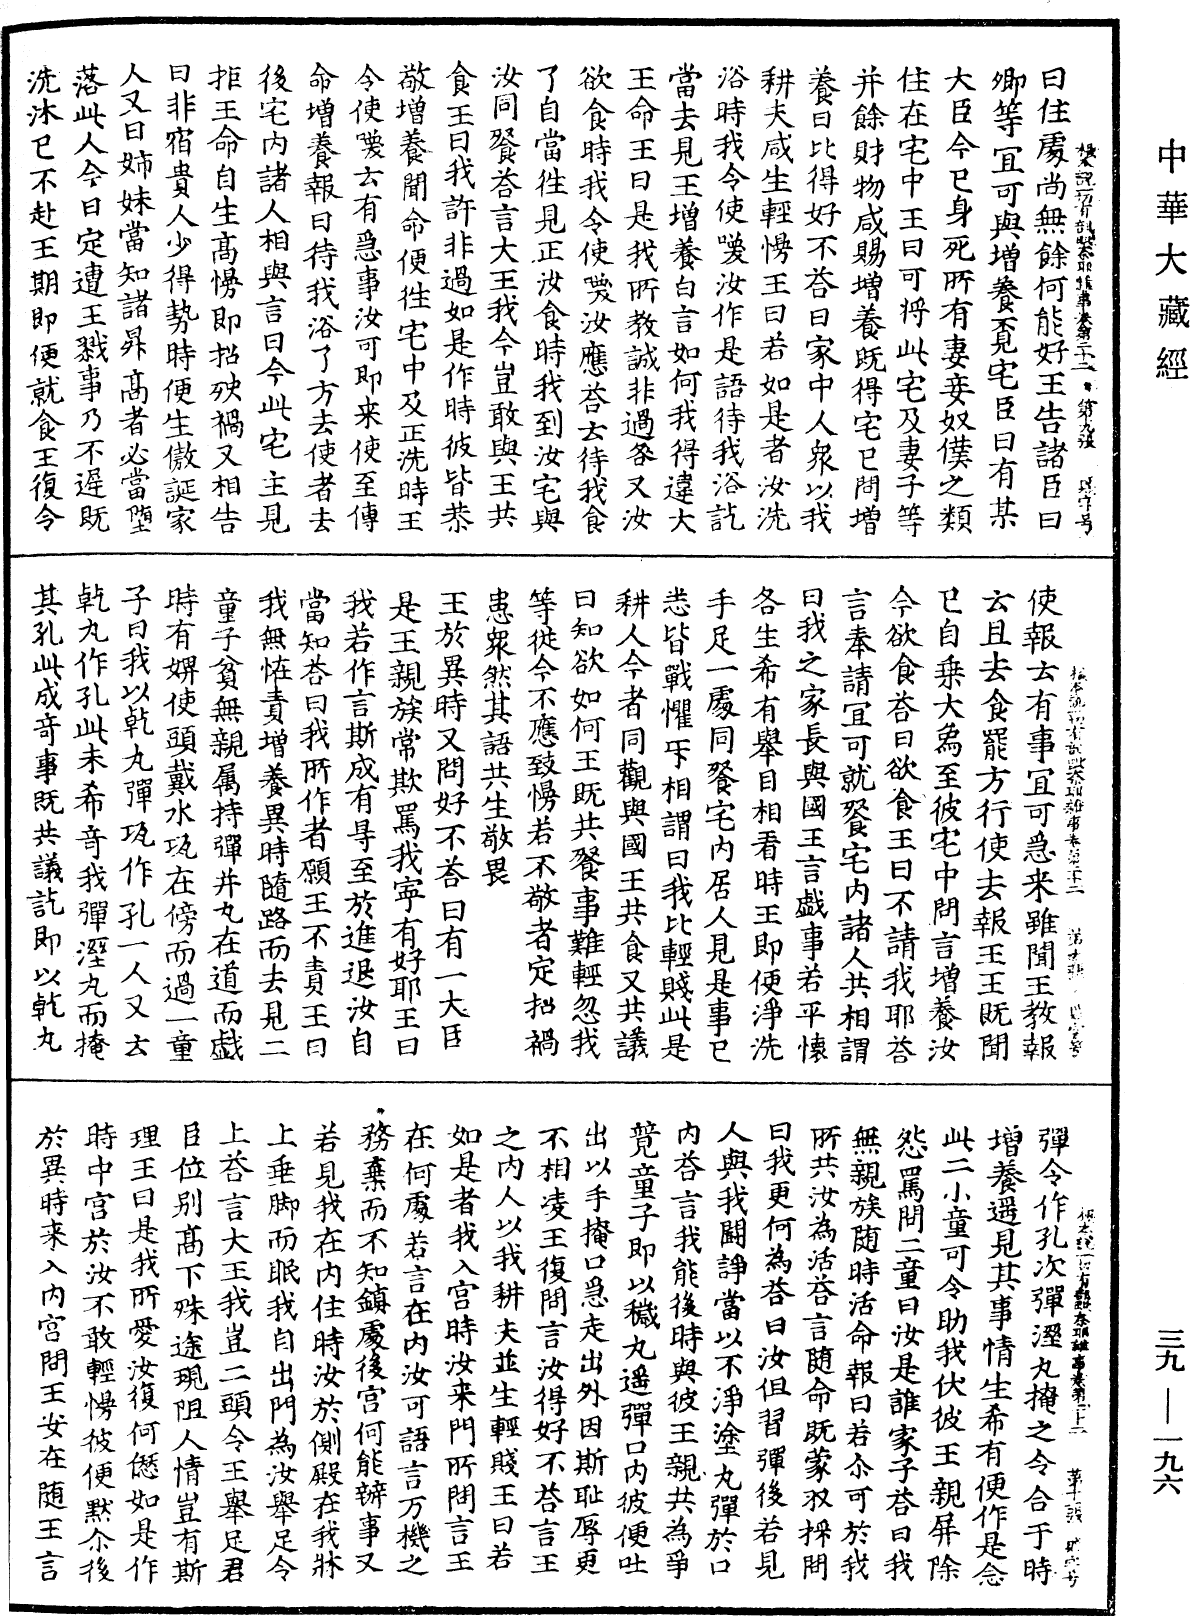 中華大藏經
曰住處尚無餘何能好王告諸臣曰
卿等宜可與增養覓宅臣曰有某
大臣今已身死所有妻妾奴僕之類
住在宅中王曰可將此宅及妻子等
并餘財物咸賜增養既得宅已問增
養曰比得好不荅曰家中人衆以我
耕夫咸生輕慢王曰若如是者汝洗
浴時我令使喚汝作是語待我浴訖
當去見王增養白言如何我得違大
王命王曰是我所教誠非過咎又汝
欲食時我令使喚汝應荅去待我食
了自當往見正汝食時我到汝宅與
汝同餐荅言大王我今豈敢與王共
食王曰我許非過如是作時彼皆恭
敬增養聞命便往宅中及正洗時王
令使喚去有急事汝可即来使至傳
命增養報曰待我浴了方去使者去
後宅内諸人相與言曰今此宅主見
拒王命自生高慢即招殃禍又相告
曰非宿貴人少得勢時便生傲誕家
人又曰姊妹當知諸昇高者必當墮
落此人今日定遭王戮事乃不遲既
洗沐已不赴王期即便就食王復令
使報去有事宜可急来雖聞王教報
云且去食罷方行使去報王王既聞
已自乗大象至彼宅中問言增養汝
今欲食荅曰欲食王曰不請我耶荅
言奉請宜可就餐宅内諸人共相謂
曰我之家長與國王言戯事若平懷
各生希有舉目相看時王即便淨洗
手足一處同餐宅内居人見是事已
悉皆戰懼互相謂曰我比輕賤此是
耕人今者同觀與國王共食又共議
曰知欲如何王既共餐事難輕忽我
等從今不應致慢若不敬者定招禍
患衆然其語共生敬畏
王於異時又問好不荅曰有一大臣
是王親族常欺罵我寧有好耶王曰
我若作言斯成有㝵至於進退汝自
當知荅曰我所作者願王不責王曰
我無恠責增養異時隨路而去見二
童子貧無親属持彈并丸在道而戯
時有婢使頭戴水瓨在傍而過一童
子曰我以乾丸彈瓨作孔一人又云
乾丸作孔此未希竒我彈溼丸而掩
其孔此成竒事既共議訖即以乾丸
彈令作孔次彈溼丸掩之令合于時
增養遥見其事情生希有便作是念
此二小童可令助我伏彼王親屏除
怨罵問二童曰汝是誰家子荅曰我
無親族随時活命報曰若尒可於我
所共汝為活荅言随命既蒙収採問
曰我更何為荅曰汝但習彈後若見
人與我鬬諍當以不淨塗丸彈於口
内荅言我能後時與彼王親共為爭
競童子即以穢丸遥彈口内彼便吐
出以手掩口急走出外因斯耻辱更
不相凌王復問言汝得好不荅言王
之内人以我耕夫並生輕賤王曰若
如是者我入宮時汝来門所問言王
在何處若言在内汝可語言万機之
務棄而不知鎮處後宮何能辦事又
若見我在内住時汝於側殿在我牀
上垂脚而眠我自出門為汝舉足令
上荅言大王我豈二頭令王舉足君
臣位别高下殊途現阻人情豈有斯
理王曰是我所愛汝復何愆如是作
時中宮於汝不敢輕慢彼便黙尒後
於異時来入内宮問王安在随王言
三九—一九六